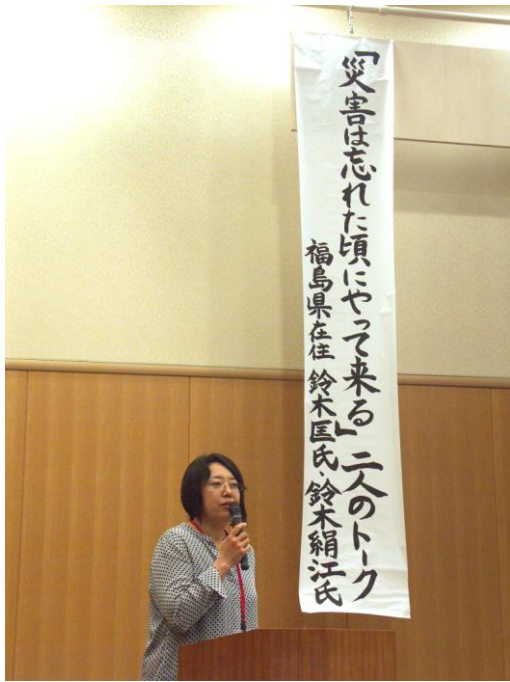 「災害は忘れた頃にやって来る」二人のトーク
福島県在住 鈴木匡氏・鈴木絹江氏